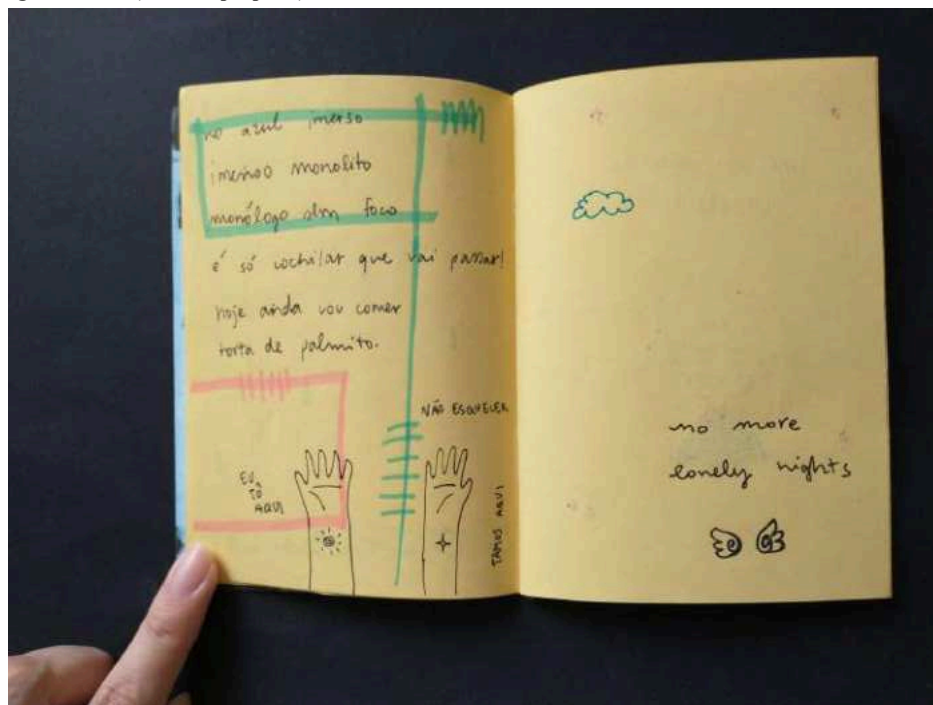 no azul imerso
imenso monolito
monólogo sem foco
é só cochilar que vai passar!
hoje ainda vou comer
torta de palmito.
NÃO ESQUECER
EU
TÔ
AQUI
TAMOS AQUI
no more
lonely nights